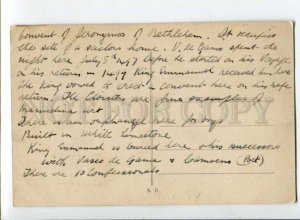 Convent of Jeronymos of Bethlehem. It occupies
the site of a sailors home. V. de Gama spent the
night here July 8th 1497 before he started on his Voyage
& his return in 1499 King Emmanuel received him here
the King vowed to erect a convent here on his safe
return. The Cloisters are fine examples of
Manueline art
There is an orphanage here for boys
Built in White limestone
King Emmanuel is buried here & his successors
with Vasco da Gama & Camoens (Poet)
There are 10 Confessionals